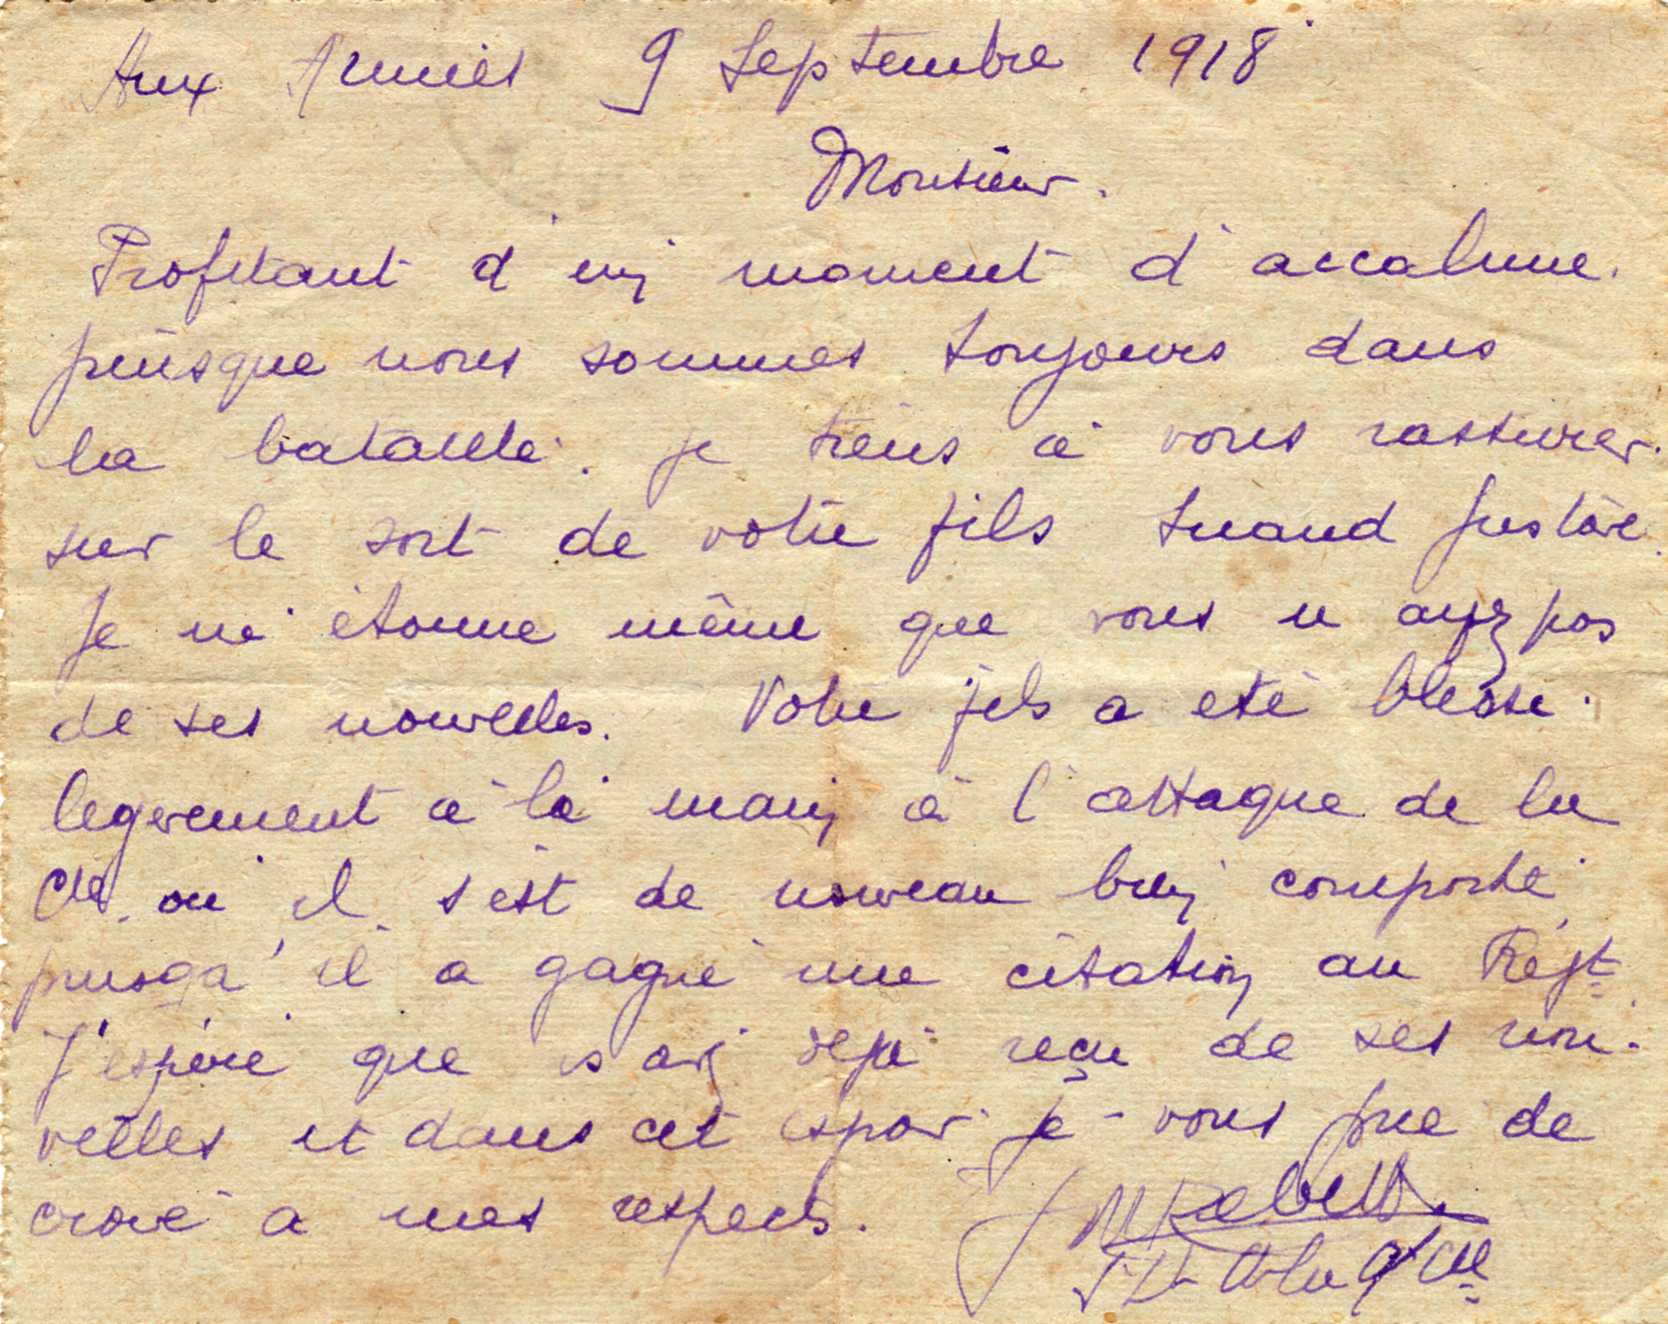 Aux Armées 9 Septembre 1918
Monsieur.
Profitant d'un moment d'accalmie.
puisque nous sommes toujours dans
la bataille. je tiens à vous rassurer.
sur le sort de votre fils
Je m'étonne même que vous n'ayez pas
de ses nouvelles. Votre fils a eté blessé.
legerement à la main à l'attaque de la
Cie. où il s'est de nouveau bien comporté
pusqu'il a gagné une citation au Régt.
J'espère que déjà reçu de ses nou-
velles et dans cet espoir je vous prie de
croire a mes respects.